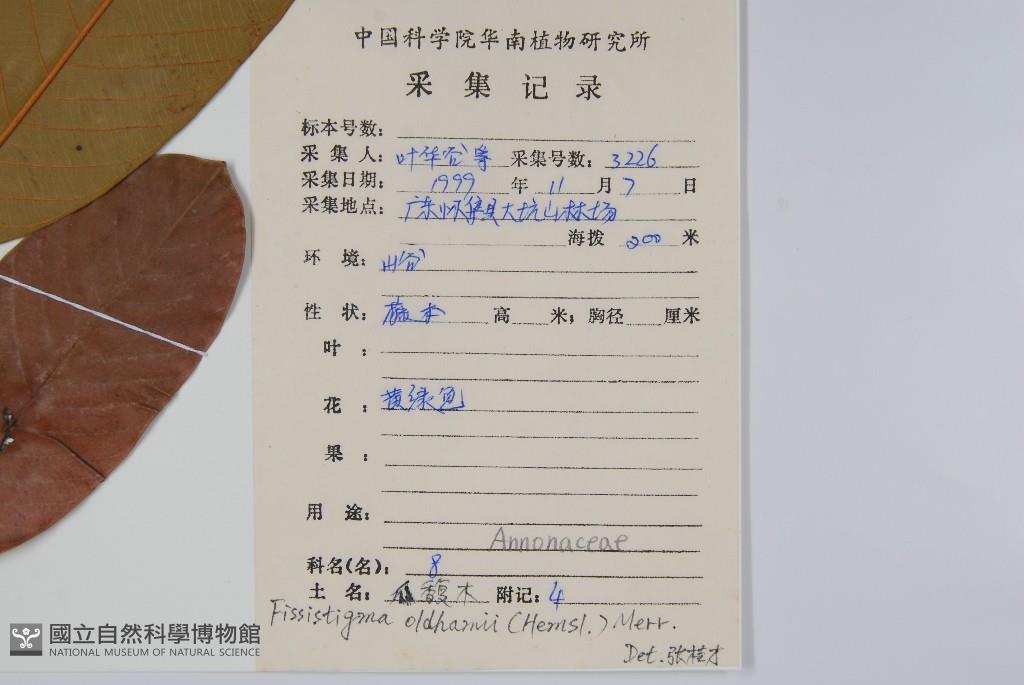 中国科学院华南植物研究所
采集记录
标本号数：
采集人：叶华谷等 采集号数：3226
采集日期：1999年11月7日
采集地点：广东怀集县大坑山林场
海拨 200 米
环境：山谷
性状：藤本 高 米；胸径 厘米
叶：
花：黄绿色
果：
用途：
Annonaceae
科名(名)：8
土名：瓜馥木 附记：4
Fissistigma oldhamii (Hemsl.) Merr.
Det. 张桂才
國立自然科學博物館
NATIONAL MUSEUM OF NATURAL SCIENCE